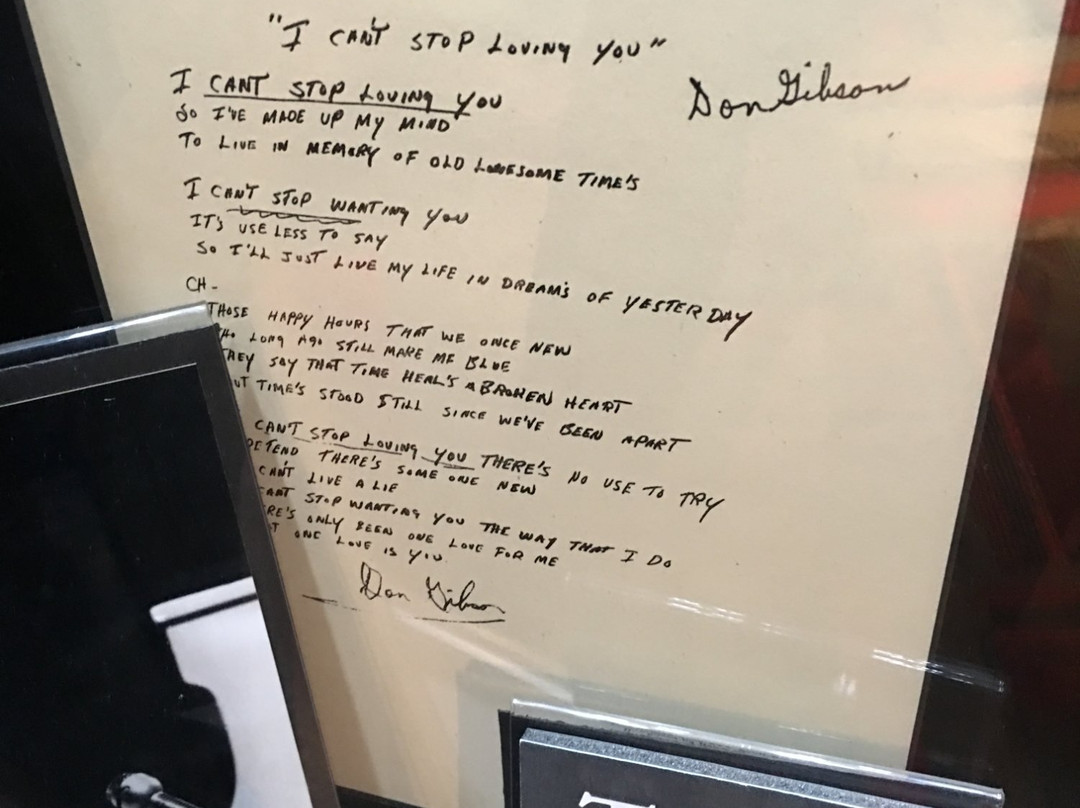 "I CAN'T STOP LOVING YOU"
Don Gibson
I CANT STOP LOVING YOU
SO I'VE MADE UP MY MIND
TO LIVE IN MEMORY OF OLD LONESOME TIME'S
I CAN'T STOP WANTING YOU
IT'S USE LESS TO SAY
SO I'LL JUST LIVE MY LIFE IN DREAM'S OF YESTERDAY
CH-
THOSE HAPPY HOURS THAT WE ONCE NEW
LONG AGO STILL MAKE ME BLUE
THEY SAY THAT TIME HEAL'S A BROKEN HEART
UT TIME'S STOOD STILL SINCE WE'VE BEEN APART
CAN'T STOP LOVING YOU THERE'S NO USE TO TRY
ETEND THERE'S SOME ONE NEW
CAN'T LIVE A LIE
CANT STOP WANTING YOU THE WAY THAT I DO
RE'S ONLY BEEN ONE LOVE FOR ME
T ONE LOVE IS YOU
Don Gibson